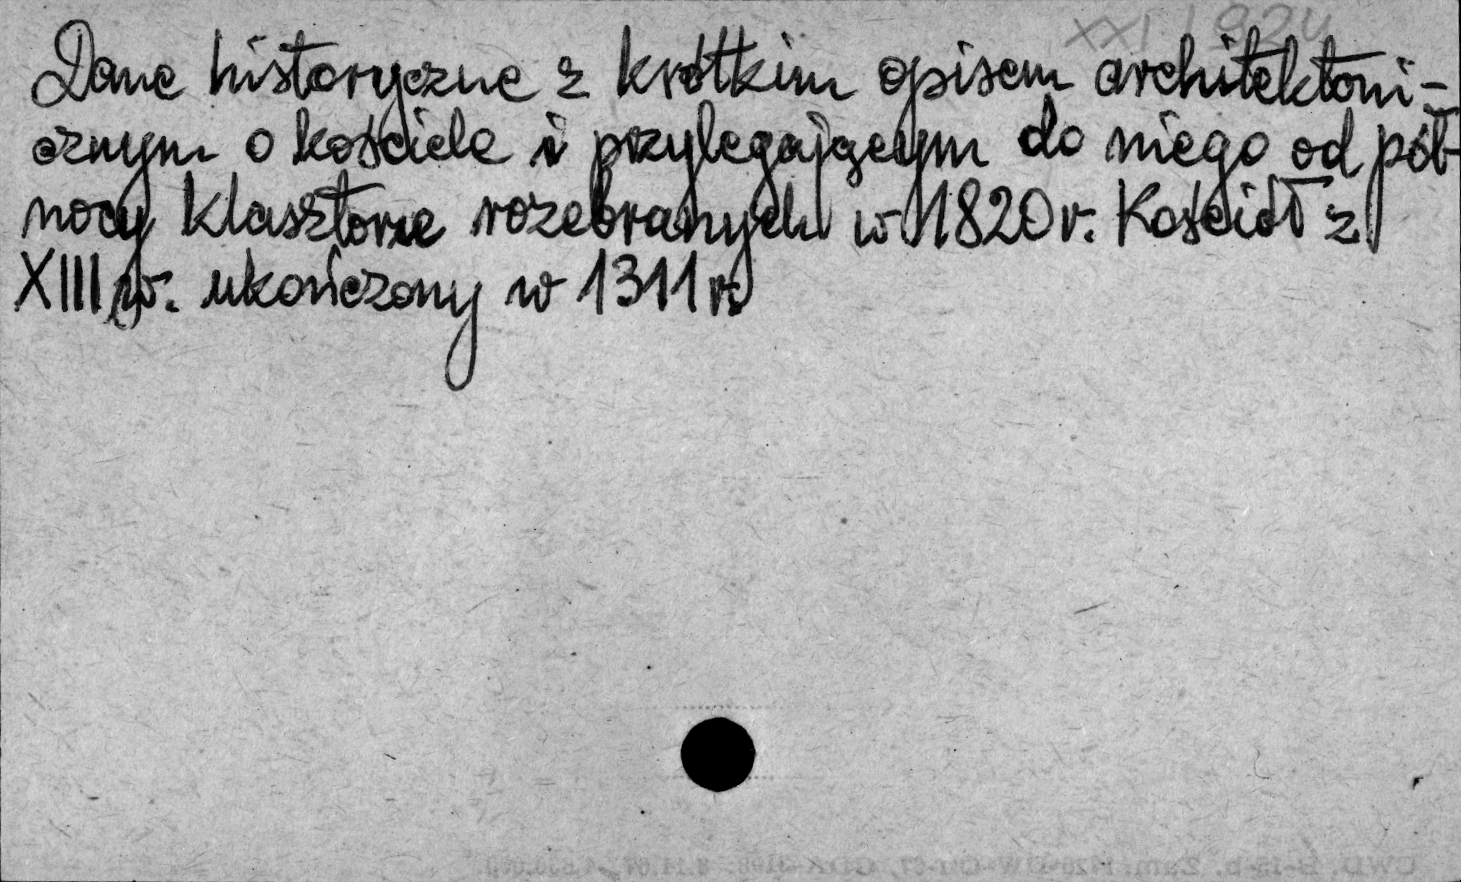 XXI 1924
Dane historyczne z krótkim opisem architektoni-
cznym o kościele i przylegającym do niego od pół-
nocy klasztorze rozebranych w 1820 r. Kościół z
XIII w. ukończony w 1311 r.